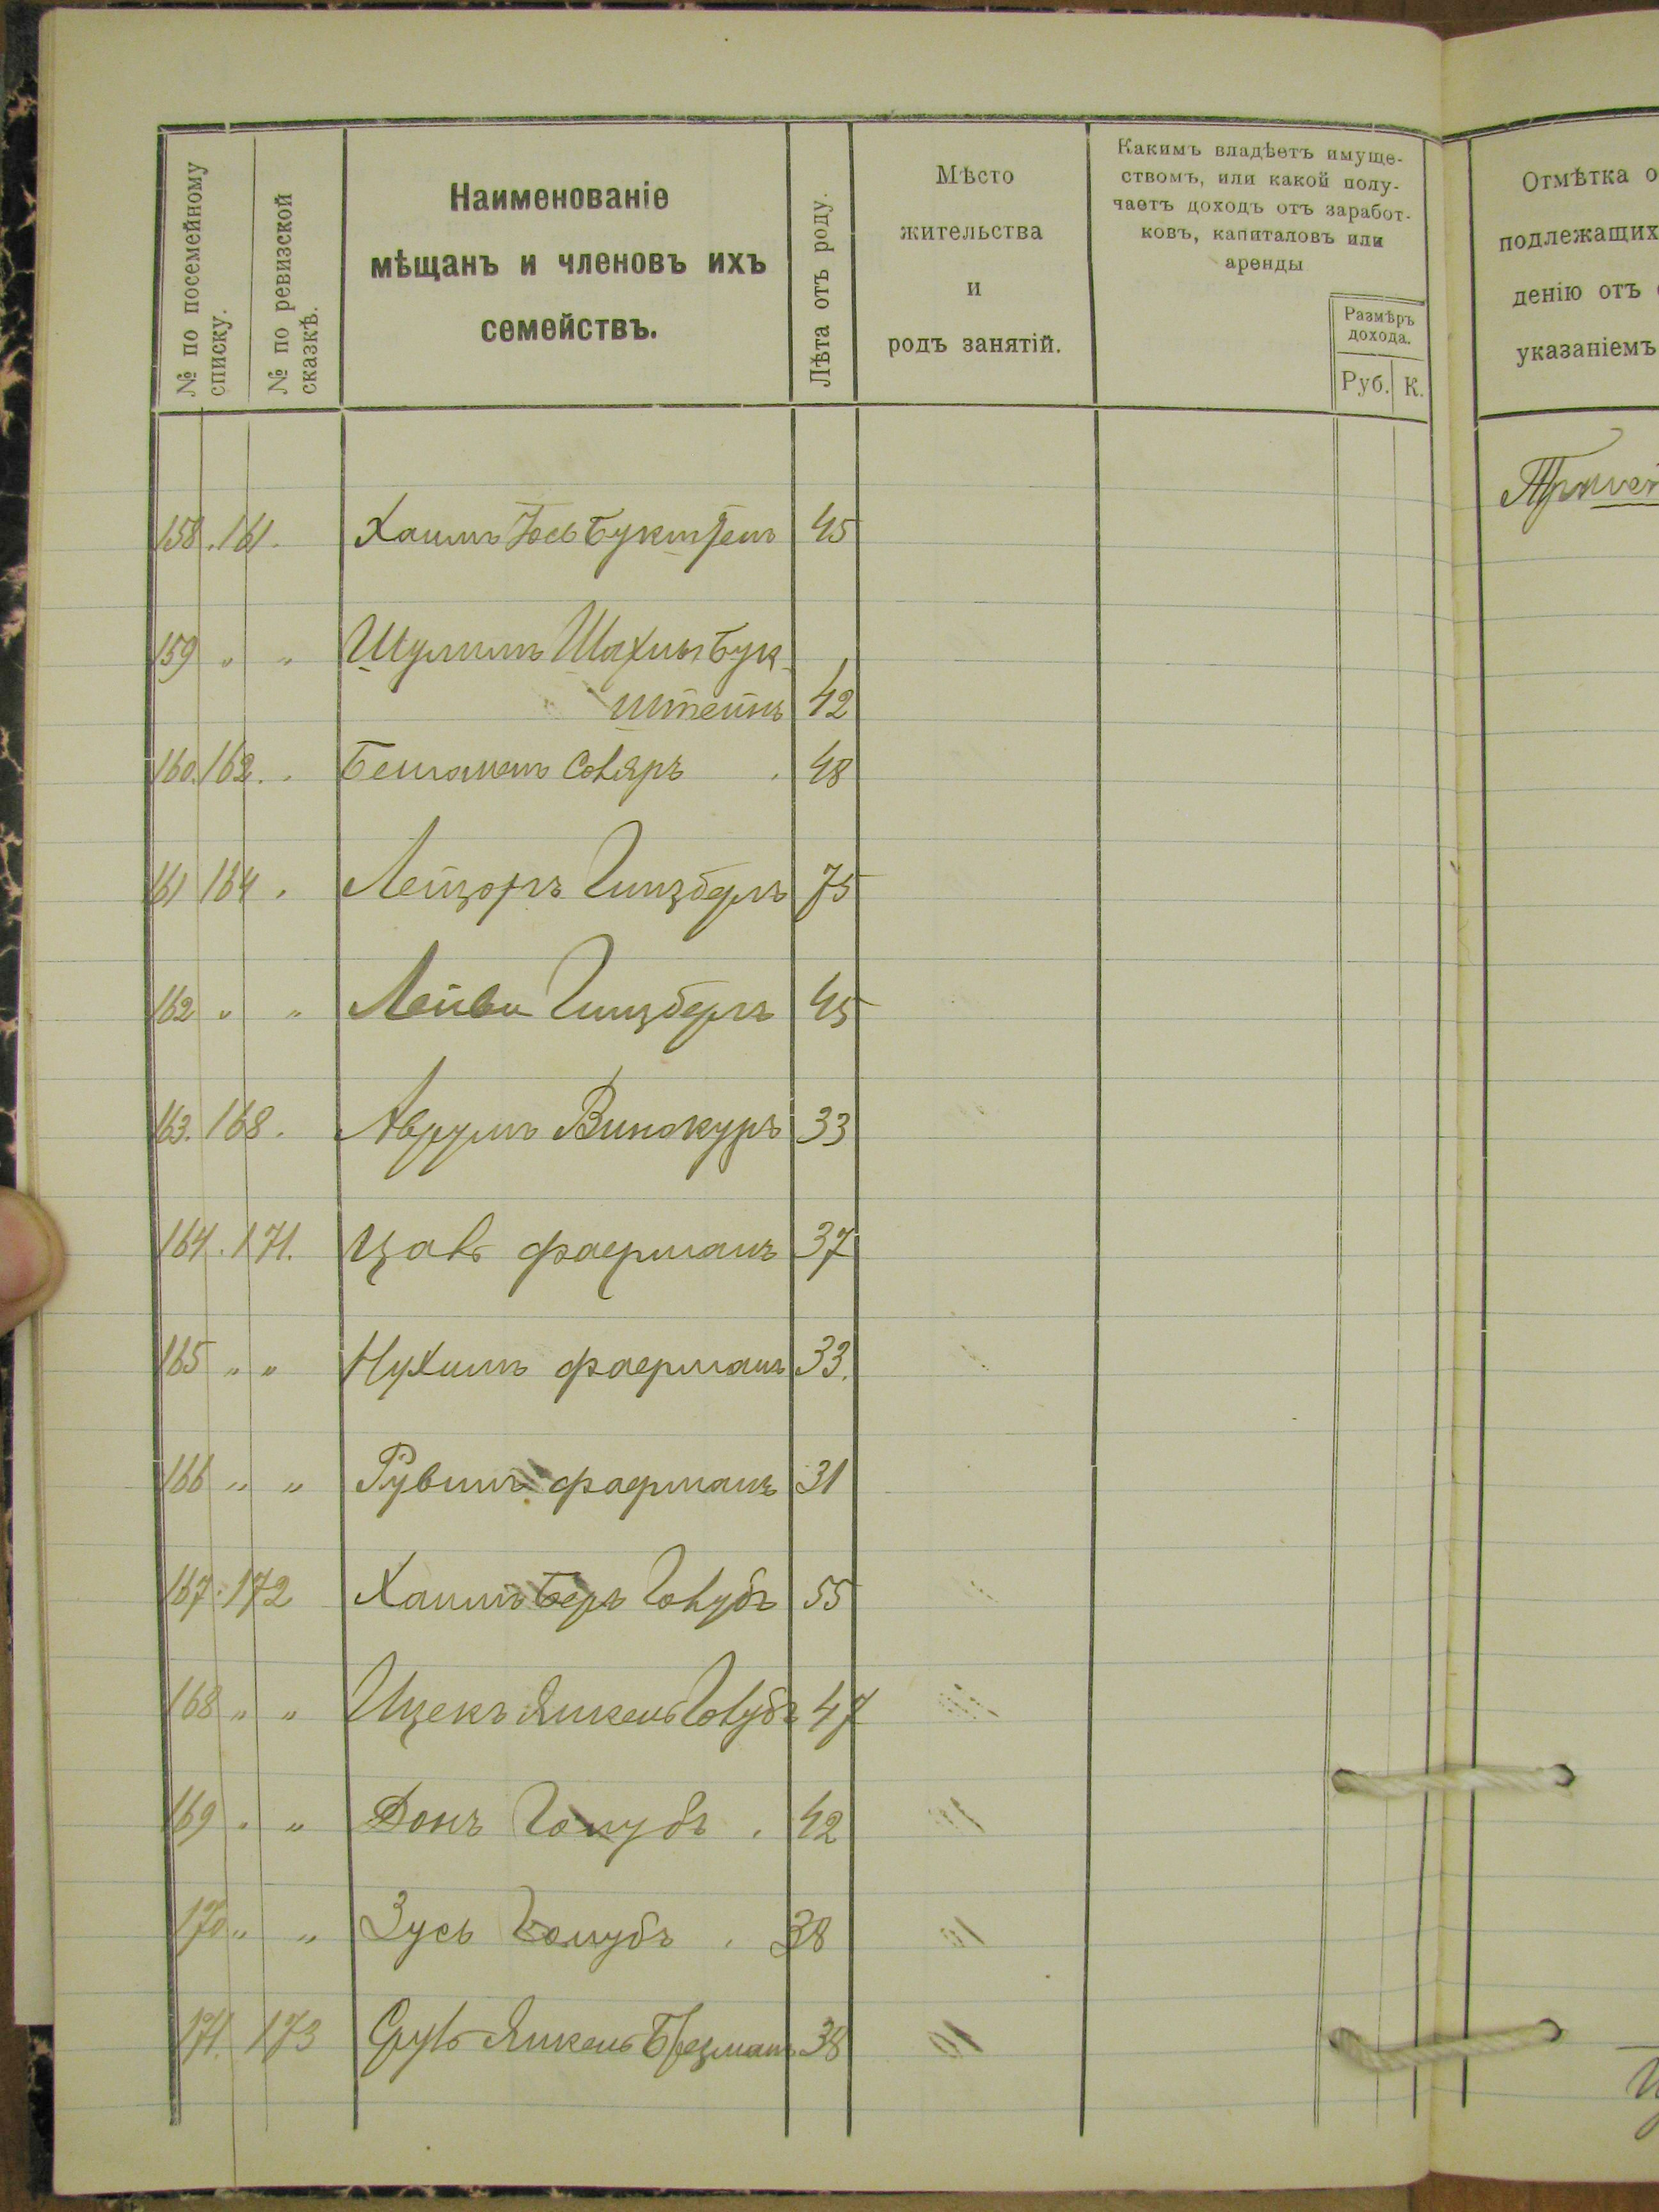 № по посемейному списку.
№ по ревизской сказкѣ.
Наименованіе
мѣщанъ и членовъ ихъ
семействъ.
Лѣта отъ роду.
Мѣсто
жительства
и
родъ занятій.
Какимъ владѣетъ имуще-
ствомъ, или какой полу-
чаетъ доходъ отъ заработ-
ковъ, капиталовъ или
аренды
Размѣръ
дохода.
Руб. К.
Отмѣтка о
подлежащих
денію отъ
указаніемъ
158. 161. Хаимъ Іось 45
159 " " Шулимъ Шахны Бук-
штейнъ 42
160. 162. Столяръ 48
161 164. Лейзоръ Гинзбергъ 75
162 " " Лейви Гинзбергъ 45
163. 168. Аврумъ Винокуръ 33
164. 171. Фаерманъ 37
165 " " Нухимъ Фаерманъ 33.
166 " " Рувинъ Фаерманъ 31
167. 172 Хаимъ Беръ Голубъ 55
168 " " Ицекъ Янкель Голубъ 47
169 " " Донъ Голубъ. 42
170 " " Зусь Голубъ. 38
171. 173 Сруль Янкель 38